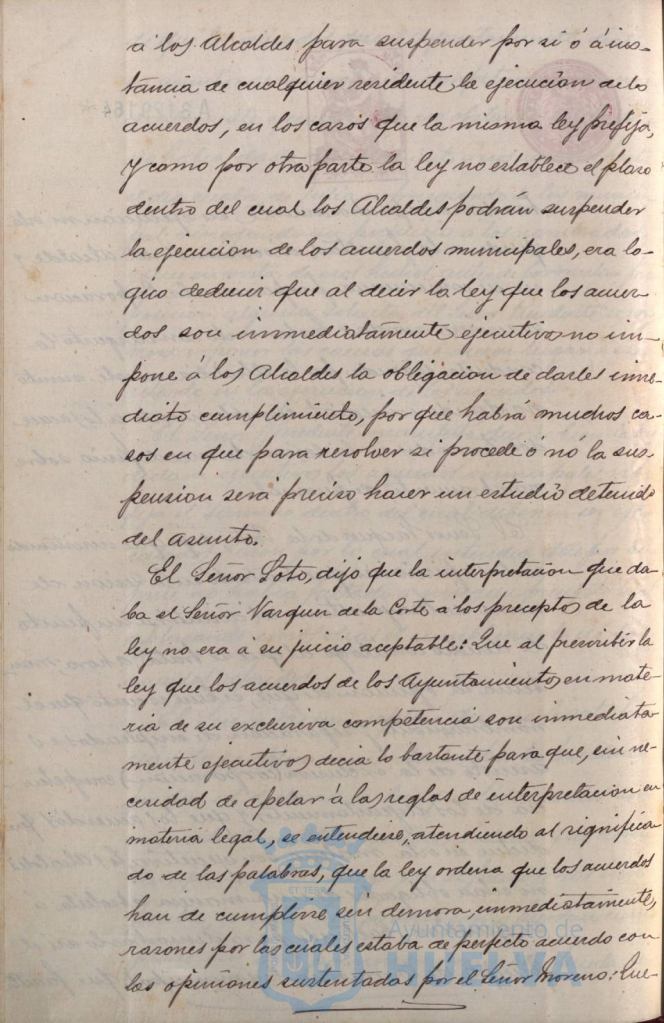 á los Alcaldes para suspender por si ó á ins-
tancia de cualquier residente la ejecucion de los
acuerdos, en los casos que la misma ley prefija,
Y como por otra parte la ley no establece el plaso
dentro del cual los Alcaldes podrán suspender
la ejecucion de los acuerdos municipales, era lo-
gico deducir que al decir la ley que los acuer-
dos son inmediatamente ejecutivos no im-
pone á los Alcaldes la obligacion de darles inme-
diato cumplimiento, por que habrá muchos ca-
sos en que para resolver si procede ó nó la sus-
pension será preciso hacer un estudio detenido
del asunto.
El Señor Soto, dijo que la interpretacion que da-
ba el Señor Vazquez de la Corte á los preceptos de la
ley no era á su juicio aceptable: Que al prescribir la
ley que los acuerdos de los Ayuntamientos en mate-
ria de su exclusiva competencia son inmediata-
mente ejecutivos decia lo bastante para que, sin ne-
cesidad de apelar á las reglas de interpretacion en
materia legal, se entendiese, atendiendo al significa-
do de las palabras, que la ley ordena que los acuerdos
han de cumplirse sin demora, inmediatamente,
razones por las cuales estaba de perfecto acuerdo con
las opiniones sustentadas por el Señor Moreno: Que-
Ayuntamiento de
HUELVA